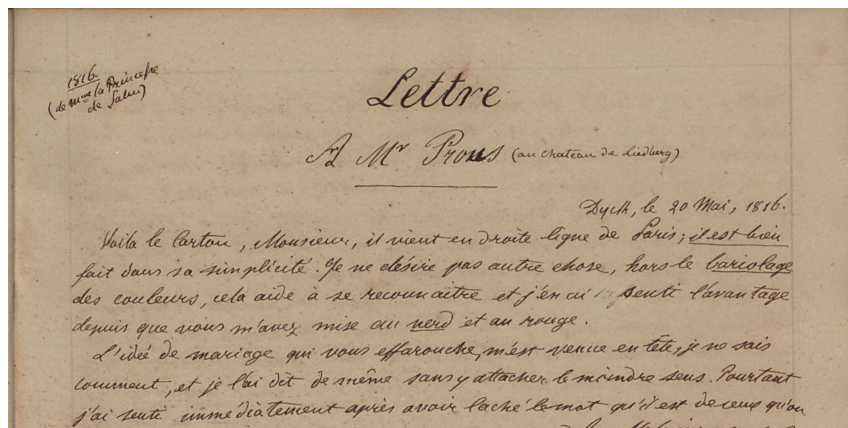 1816.
(de Mme la Princesse
de Salm)
Lettre
A Mr Prous (au chateau de Liedberg)
Dyck, le 20 Mai, 1816.
Voila le carton, Monsieur, il vient en droite ligne de Paris; il est bien
fait dans sa simplicité. Je ne désire pas autre chose, hors le bariolage
des couleurs, cela aide à se reconnaitre et j'en ai senti l'avantage
depuis que vous m'avez mise au verd et au rouge.
L'idée de mariage qui vous effarouche, m'est venue en tête, je ne sais
comment, et je l'ai dit de même sans y attacher le moindre sens. Pourtant
j'ai senti immédiatement après avoir laché le mot qu'il est de ceux qu'on